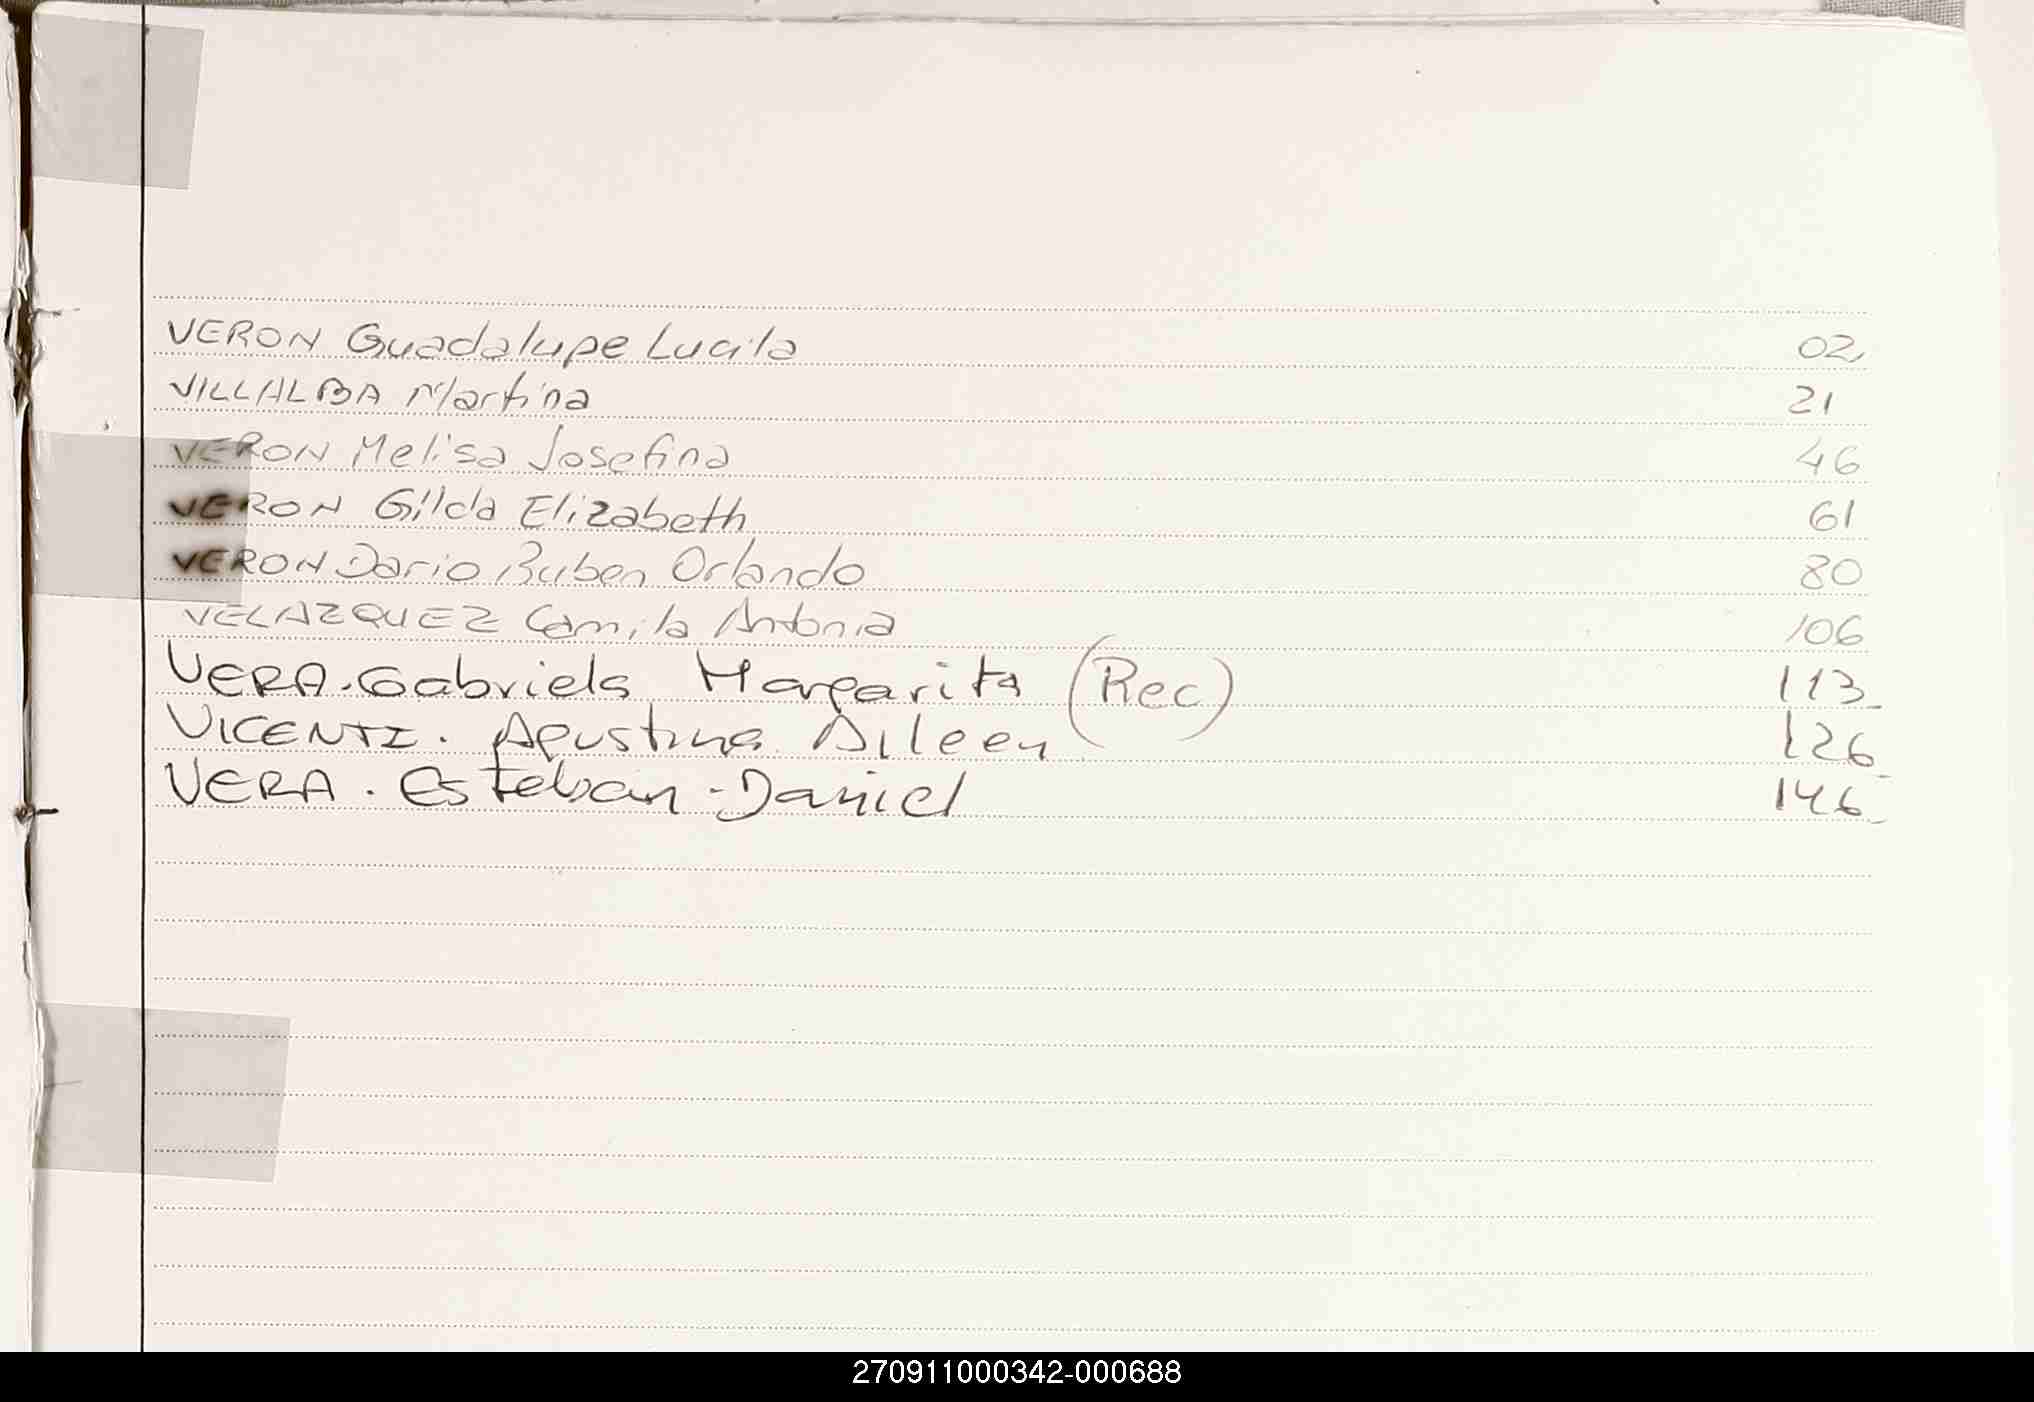 VERON Guadalupe Lucila 02
VILLALBA Martina 21
VERON Melisa Josefina 46
VERON Gilda Elizabeth 61
VERON Dario Ruben Orlando 80
VELAZQUEZ Camila Antonia 106
VERA. Gabriela Margarita (Rec) 113
VICENTI. Agustina Aileen 126
VERA. Esteban. Daniel 146
270911000342-000688